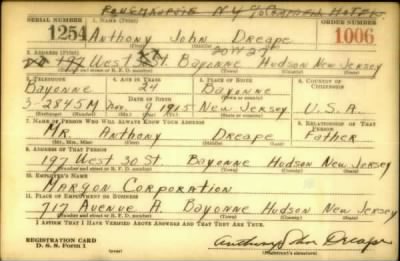 POUGHKEEPSIE N.Y. CAMPBELL HOTEL
SERIAL NUMBER 1. NAME (Print) ORDER NUMBER
1254 Anthony John Dreape 1006
(First) (Middle) (Last)
20 W 27
2. ADDRESS (Print)
197 West St. Bayonne Hudson New Jersey
(Number and street or R. F. D. number) (Town) (County) (State)
3. TELEPHONE 4. AGE IN YEARS 5. PLACE OF BIRTH 6. COUNTRY OF CITIZENSHIP
Bayonne 24 Bayonne
DATE OF BIRTH
3-2845M Nov. 9 1915 New Jersey U.S.A.
(Exchange) (Number) (Mo.) (Day) (Yr.) (State or country)
7. NAME OF PERSON WHO WILL ALWAYS KNOW YOUR ADDRESS 8. RELATIONSHIP OF THAT PERSON
Mr. Anthony Dreape Father
(Mr., Mrs., Miss) (First) (Middle) (Last)
9. ADDRESS OF THAT PERSON
197 West 30 St. Bayonne Hudson New Jersey
(Number and street or R. F. D. number) (Town) (County) (State)
10. EMPLOYER'S NAME
Margon Corporation
11. PLACE OF EMPLOYMENT OR BUSINESS
717 Avenue A. Bayonne Hudson New Jersey
(Number and street or R. F. D. number) (Town) (County) (State)
I AFFIRM THAT I HAVE VERIFIED ABOVE ANSWERS AND THAT THEY ARE TRUE.
REGISTRATION CARD
D. S. S. Form 1
Anthony John Dreape
(Registrant's signature)